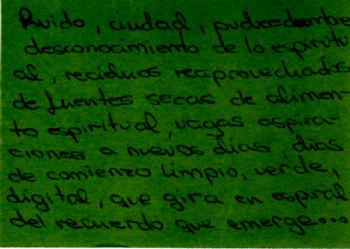 Ruido, ciudad, puducedumbre
desconocimiento de lo espiritu-
al, reciduos reaprovechados
de fuentes secas de alimen-
to espiritual, vagas aspira-
ciones a nuevos dias, dias
de comienzo limpio, verde,
digital, que gira en espiral
del recuerdo que emerge...